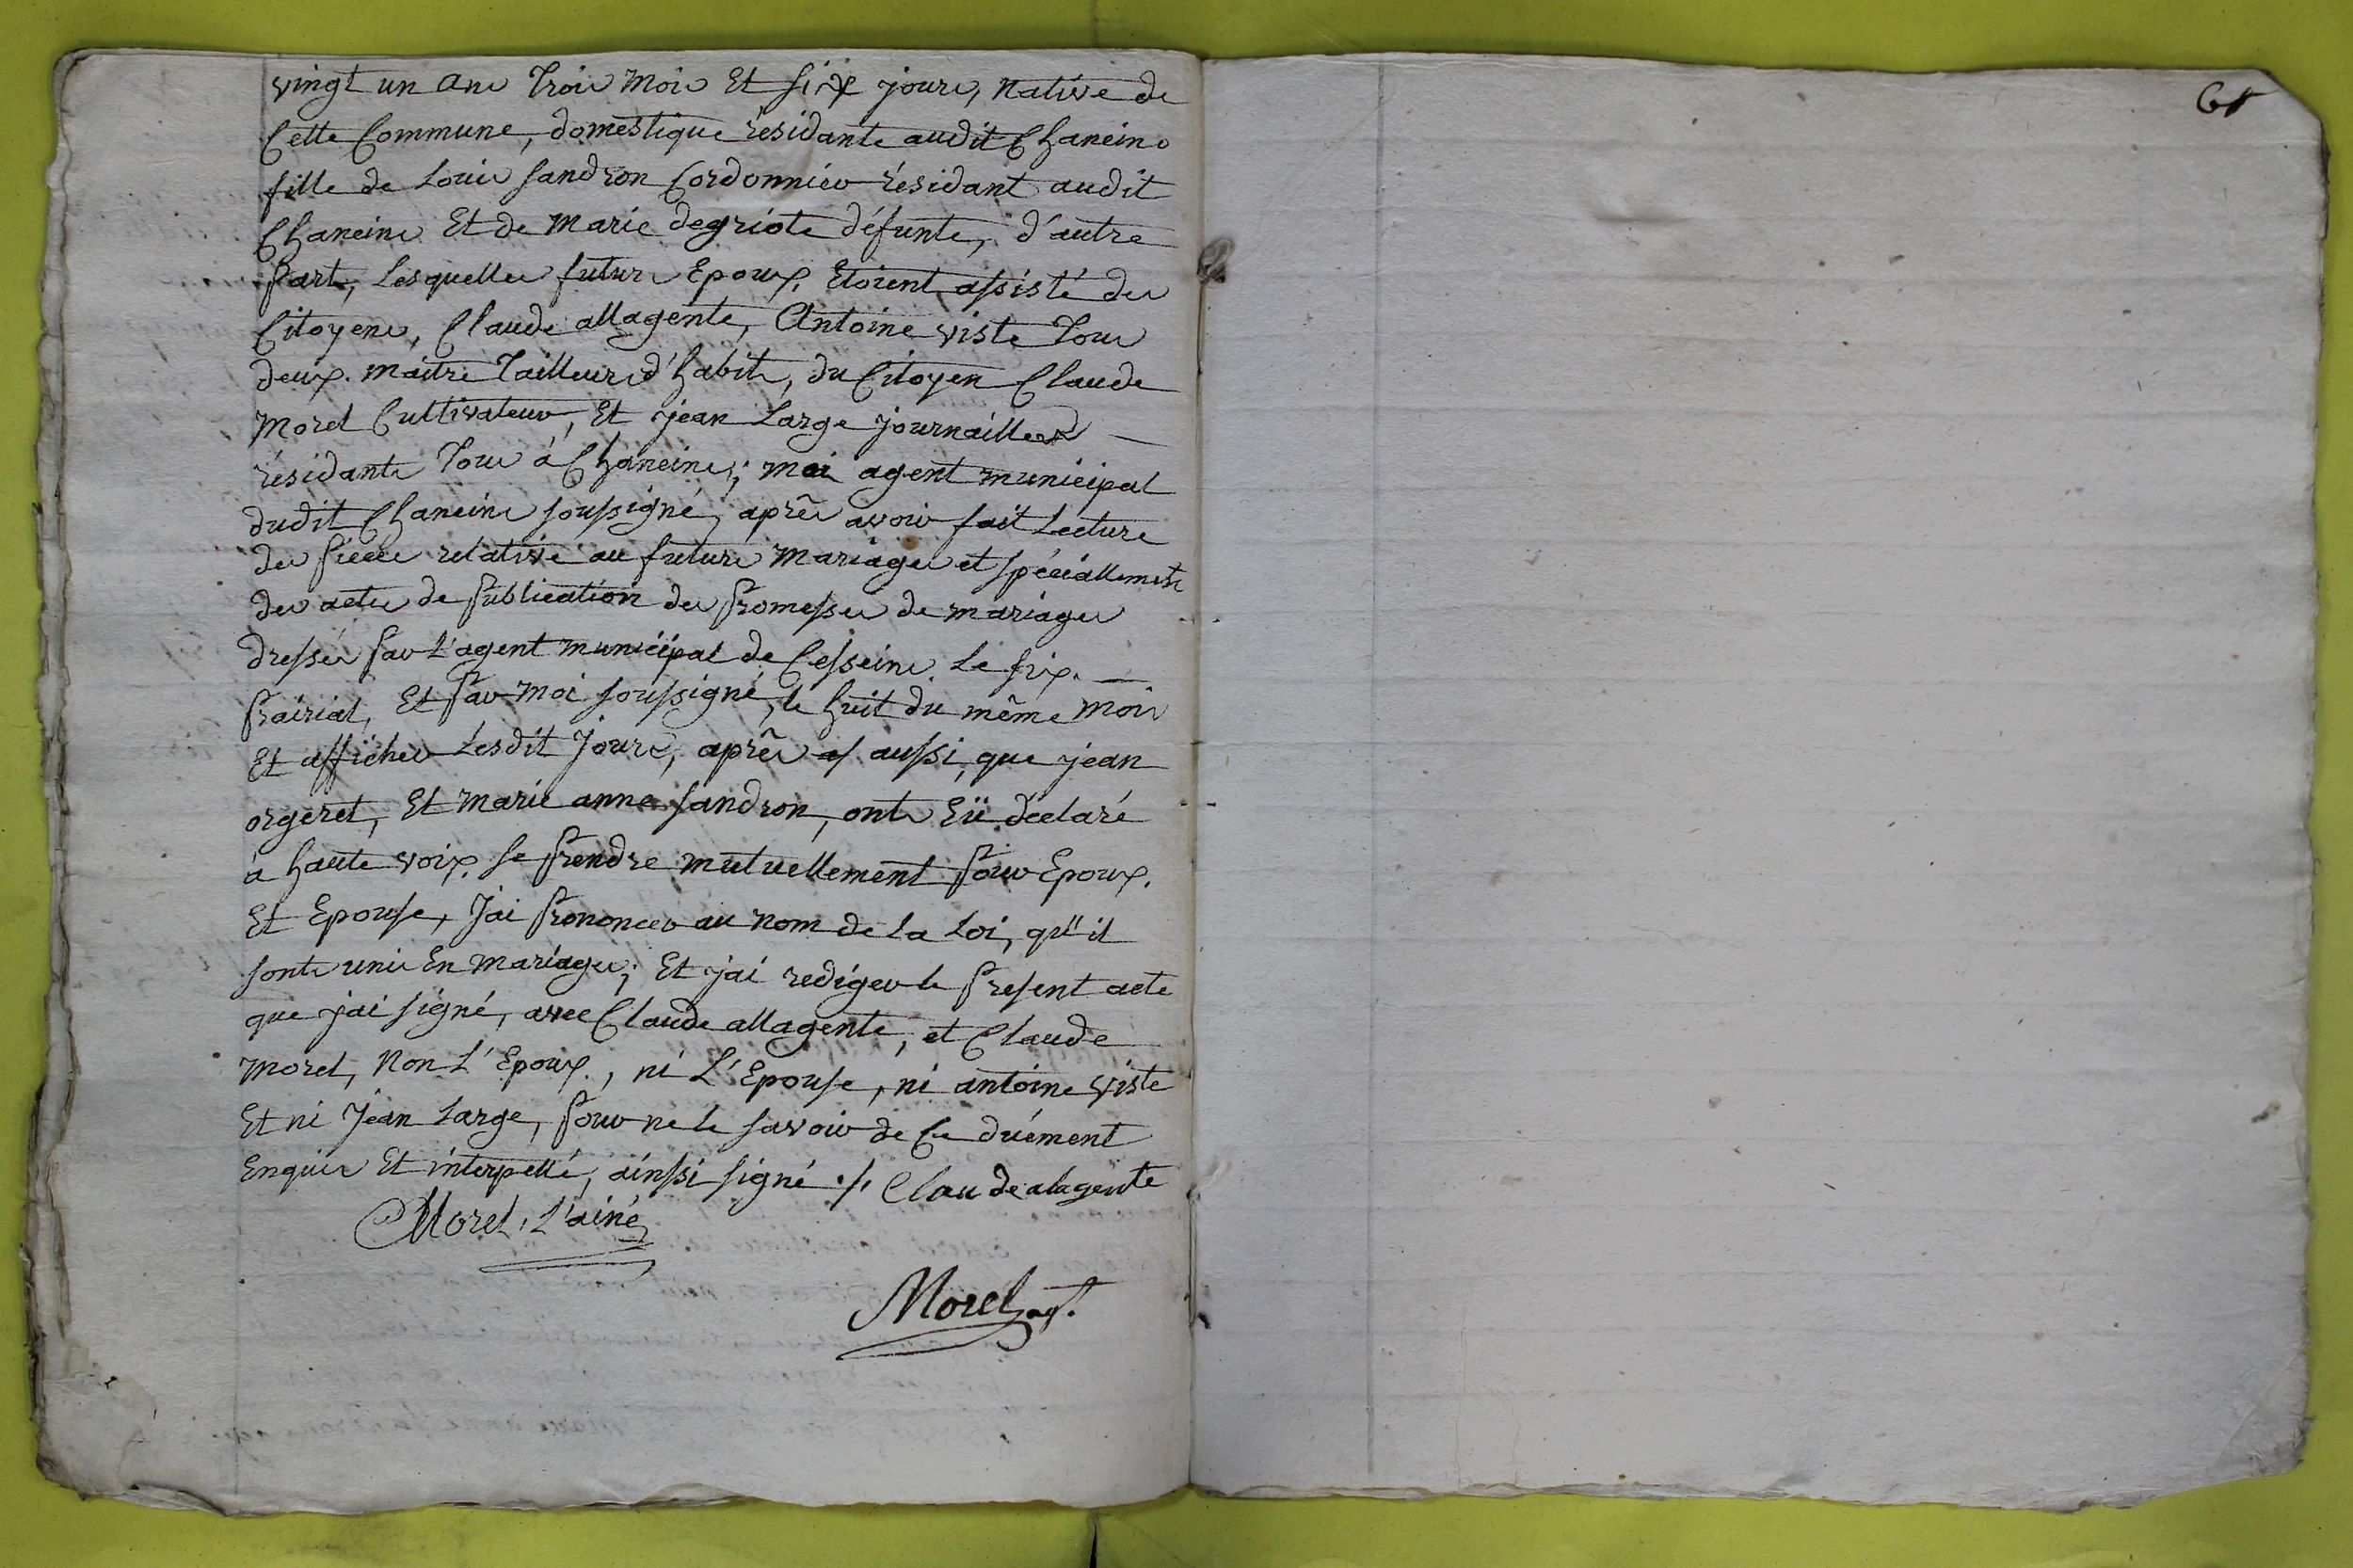 vingt un ans trois mois Et six jours, native de
Cette Commune, domestique résidante audit Chaneins
fille de Louis sandron Cordonnier résidant audit
Chaneins Et de marie degriote défunte, d'autre
part, Lesquelles futurs Epoux, Etoient assisté des
Citoyens, Claude allagente, Antoine viste tous
deux maitre Tailleurs d'habits, du Citoyen Claude
morel Cultivateur, Et jean Large journailler
résidants Tous à Chaneins; moi agent municipal
dudit Chaneins soussigné, aprês avoir fait Lecture
des pieces relative au future mariages et spéciallements
des actes de publication des promesses de mariages
dressés par L'agent municipal de Cesseins le six
prairial, Et par moi soussigné, le huit du même mois
Et afficher Lesdit jours, aprês aussi, que jean
orgeret, Et marie anne sandron, onts Eü déclaré
à haute voix se prendre mutuellement pour Epoux,
Et Epouse, j'ai prononcer au nom de la Loi, qu'il
sonts unis En mariages; Et j'ai rediger le present acte
que j'ai signé, avec Claude allagente, et Claude
morel, non L'Epoux, ni L'Epouse, ni antoine viste
Et ni jean Large, pour ne le savoir de Ce duément
Enquis Et interpellé, ainssi signé ./. Claude alagente
Morel, L'ainé
Morel agt.